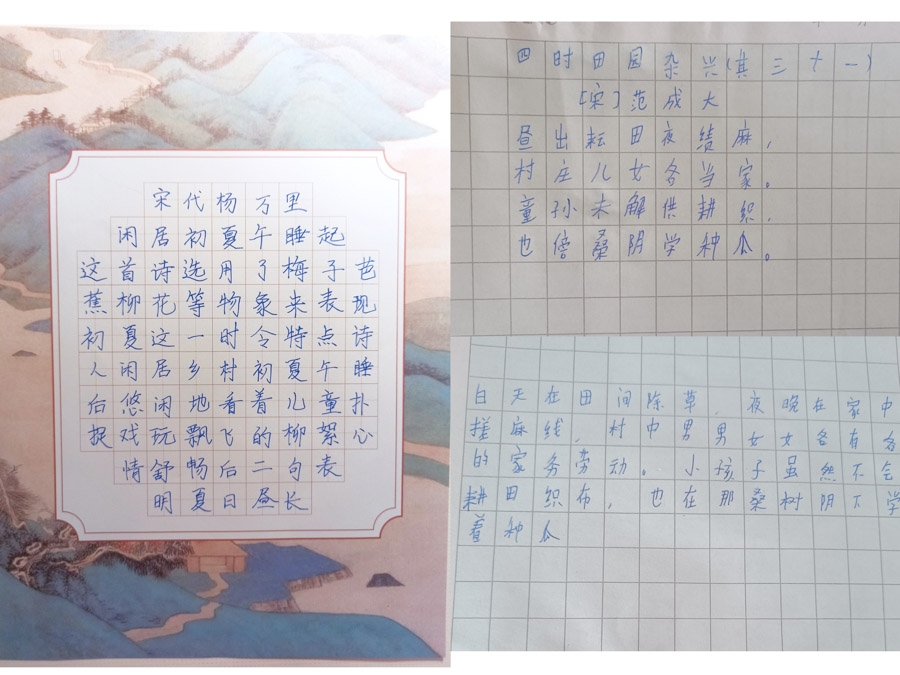 宋代杨万里
闲居初夏午睡起
这首诗选用了梅子芭
蕉柳花等物象来表现
初夏这一时令特点诗
人闲居乡村初夏午睡
后悠闲地看着儿童扑
捉戏玩飘飞的柳絮心
情舒畅后二句表
明夏日昼长
四时田园杂兴(其三十一)
[宋]范成大
昼出耘田夜绩麻,
村庄儿女各当家。
童孙未解供耕织,
也傍桑阴学种瓜。
白天在田间除草,夜晚在家中
搓麻线,村中男男女女各有各
的家务劳动。小孩子虽然不会
耕田织布,也在那桑树阴下学
着种瓜